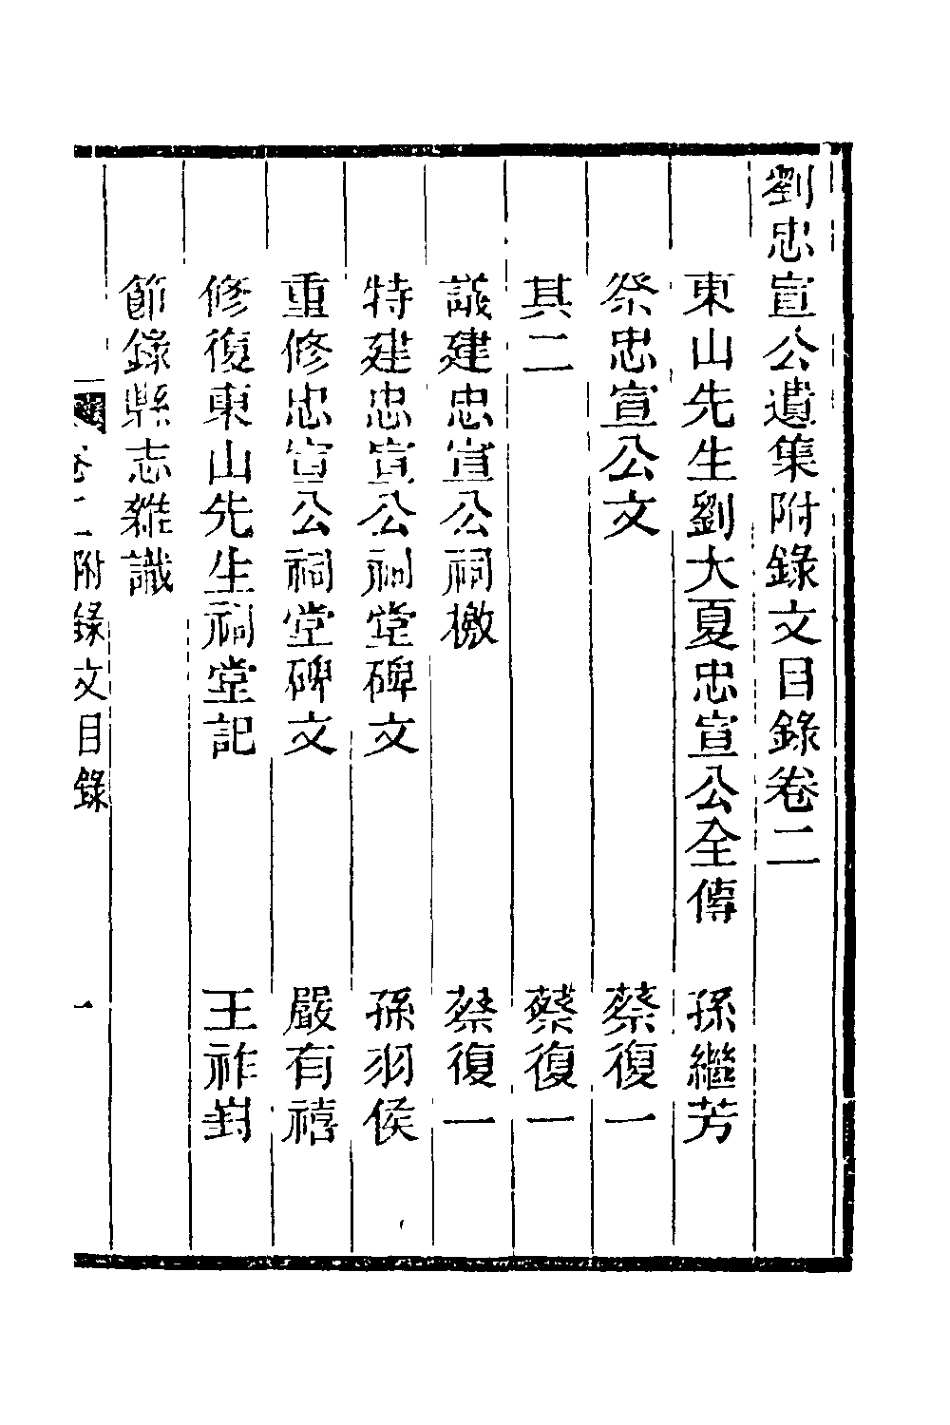 劉忠宣公遺集附錄文目錄卷二
東山先生劉大夏忠宣公全傳　孫繼芳
祭忠宣公文　蔡復一
其二　蔡復一
議建忠宣公祠檄　蔡復一
特建忠宣公祠堂碑文　孫羽侯
重修忠宣公祠堂碑文　嚴有禧
修復東山先生祠堂記　王祚
節錄縣志雜識
卷二附錄文目錄　一